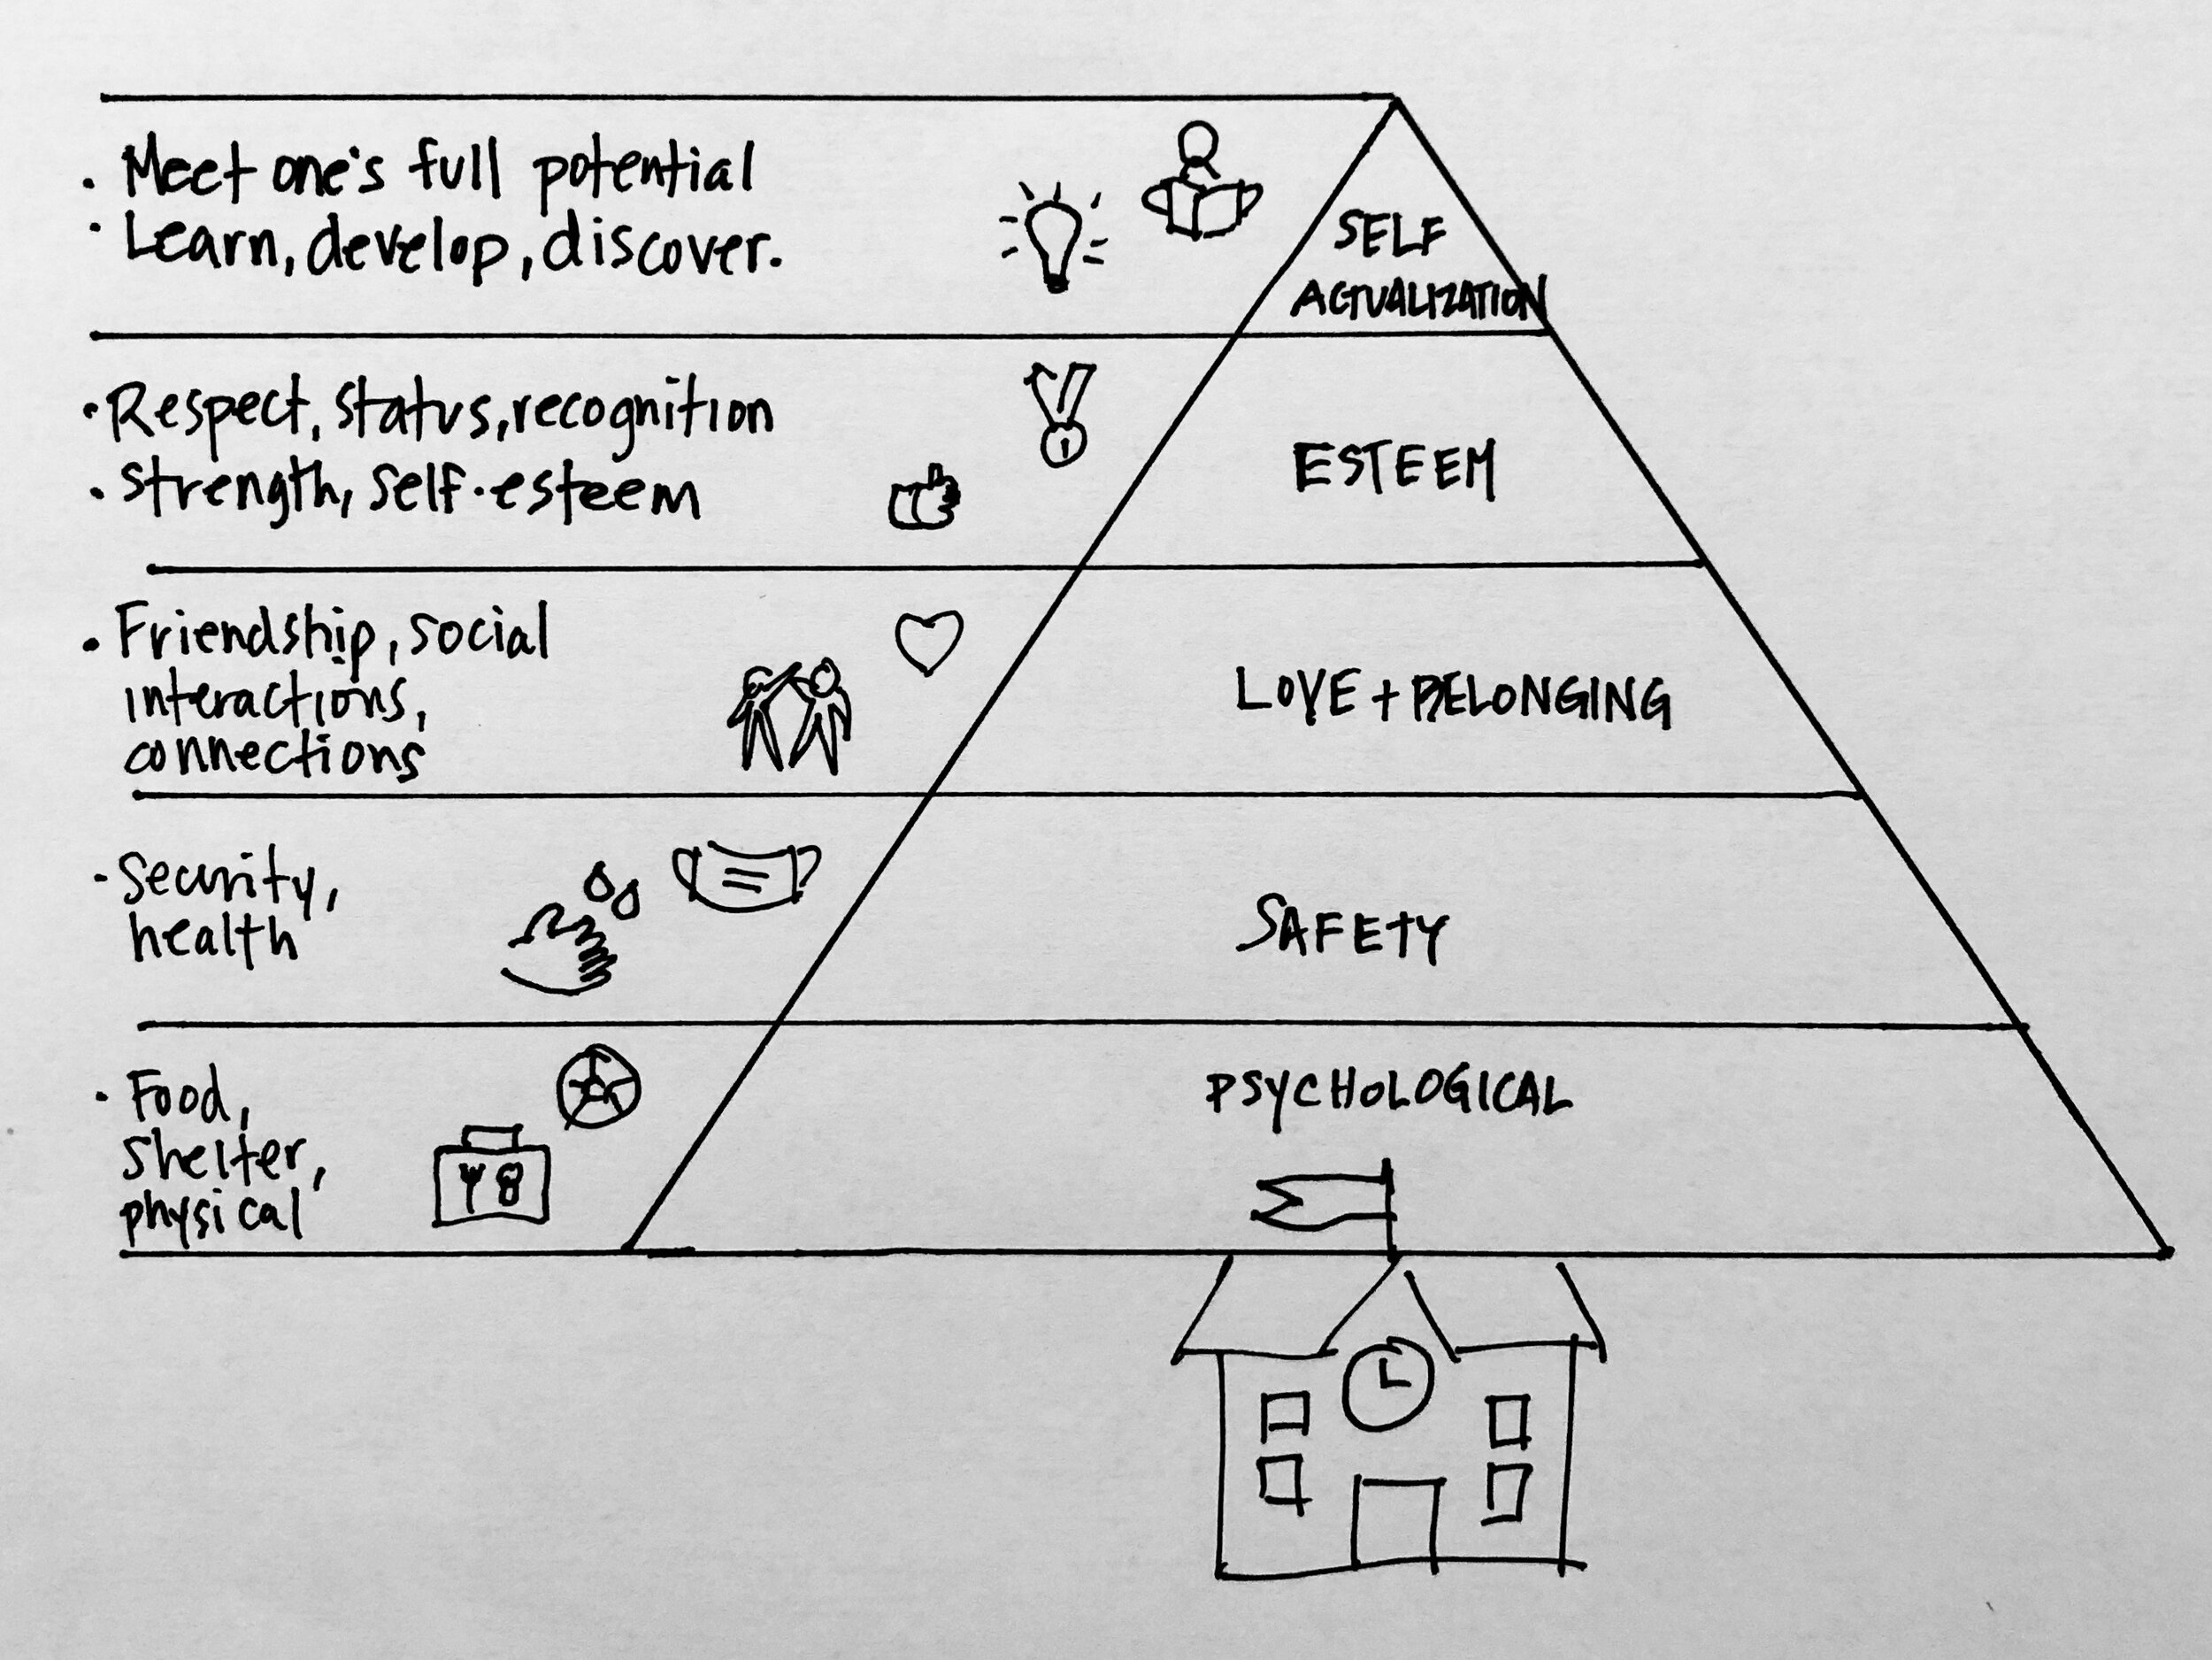 . Meet one's full potential
· Learn, develop, discover.
SELF
ACTUALIZATION
· Respect, status, recognition
. strength, self-esteem
1
ESTEEM
. Friendship, social
interactions,
connections
LOVE + BELONGING
- Security,
health
SAFETY
· Food,
shelter,
physical
PSYCHOLOGICAL